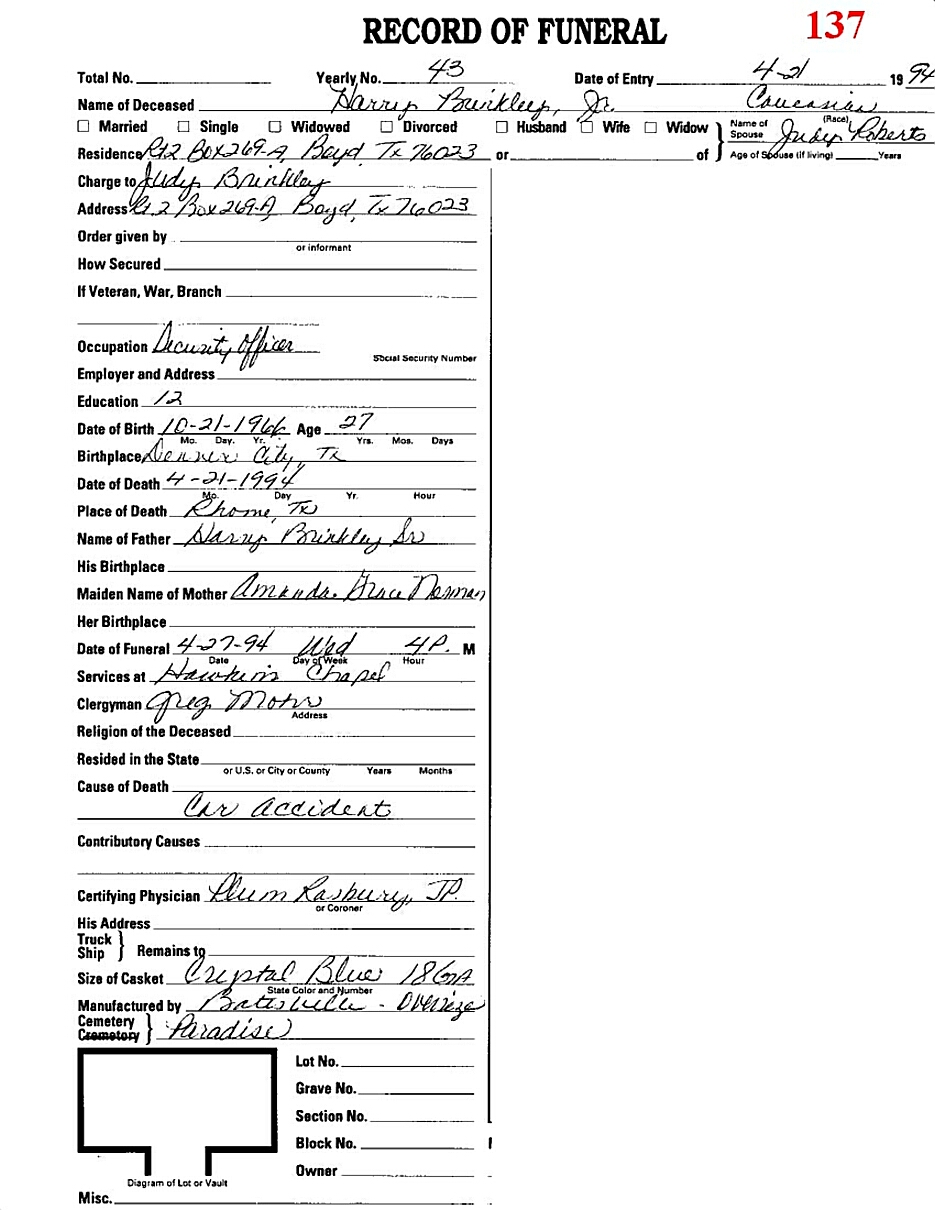 RECORD OF FUNERAL 137
Total No. Yearly No. 43 Date of Entry 4-21 19 94
Name of Deceased Harry Brinkley, Jr. Caucasian
(Race)
☐ Married ☐ Single ☐ Widowed ☐ Divorced ☐ Husband ☐ Wife ☐ Widow } Name of Spouse Judy Roberts
Residence Rt 2 Box 269-A, Boyd, Tx 76023 or of Age of Spouse (if living) Years
Charge to Judy Brinkley
Address Rt 2 Box 269-A, Boyd, Tx 76023
Order given by
or informant
How Secured
If Veteran, War, Branch
Occupation Security Officer
Social Security Number
Employer and Address
Education 12
Date of Birth 10-21-1966 Age 27
Mo. Day. Yr. Yrs. Mos. Days
Birthplace Denver City, Tx
Date of Death 4-21-1994
Mo. Day Yr. Hour
Place of Death Rhome, Tx
Name of Father Harry Brinkley Sr
His Birthplace
Maiden Name of Mother Amanda Grace Norman
Her Birthplace
Date of Funeral 4-27-94 Wed 4P. M
Date Day of Week Hour
Services at Hawkins Chapel
Clergyman Greg
Address
Religion of the Deceased
Resided in the State
or U.S. or City or County Years Months
Cause of Death
Car accident
Contributory Causes
Certifying Physician Rasbury, JP.
or Coroner
His Address
Truck
Ship } Remains to
Size of Casket Crystal Blue 18GA
State Color and Number
Manufactured by Batesville - Oversize
Cemetery
Crematory } Paradise
Lot No.
Grave No.
Section No.
Block No.
Owner
Diagram of Lot or Vault
Misc.